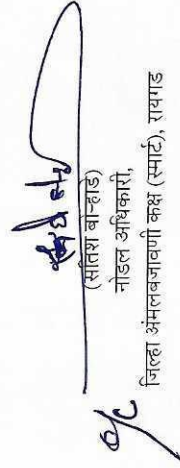 o/c
(सतिश बोऱ्हाडे)
नोडल अधिकारी,
जिल्हा अंमलबजावणी कक्ष (स्मार्ट), रायगड